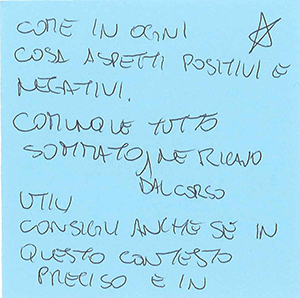 COME IN OGNI
COSA ASPETTI POSITIVI E
NEGATIVI.
COMUNQUE TUTTO
SOMMATO, NE RICAVO
DAL CORSO
UTILI
CONSIGLI ANCHE SE IN
QUESTO CONTESTO
PRECISO E IN